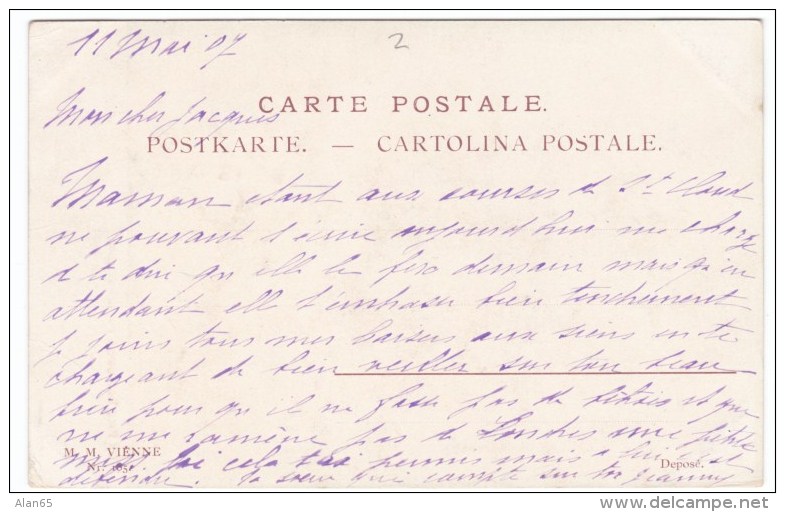 11 Mai 07
2
Mon cher Jacques
CARTE POSTALE.
POSTKARTE. — CARTOLINA POSTALE.
Maman étant aux courses de St Cloud
ne pouvant t'écrire aujourd'hui me charge
de te dire qu'elle le fera demain mais qu'en
attendant elle t'embrasse bien tendrement
je joins tous mes baisers aux siens en te
chargeant de bien veiller sur ton beau
frère pour qu'il ne fasse pas de bêtises et que
ne me ramène pas de Londres une petite
M. M. VIENNE
Nr. 185
miss, ici cela t'es permis mais à lui c'est
Deposé.
défendu. Ta soeur qui compte sur toi Jeanny
Alan65
delcampe.net